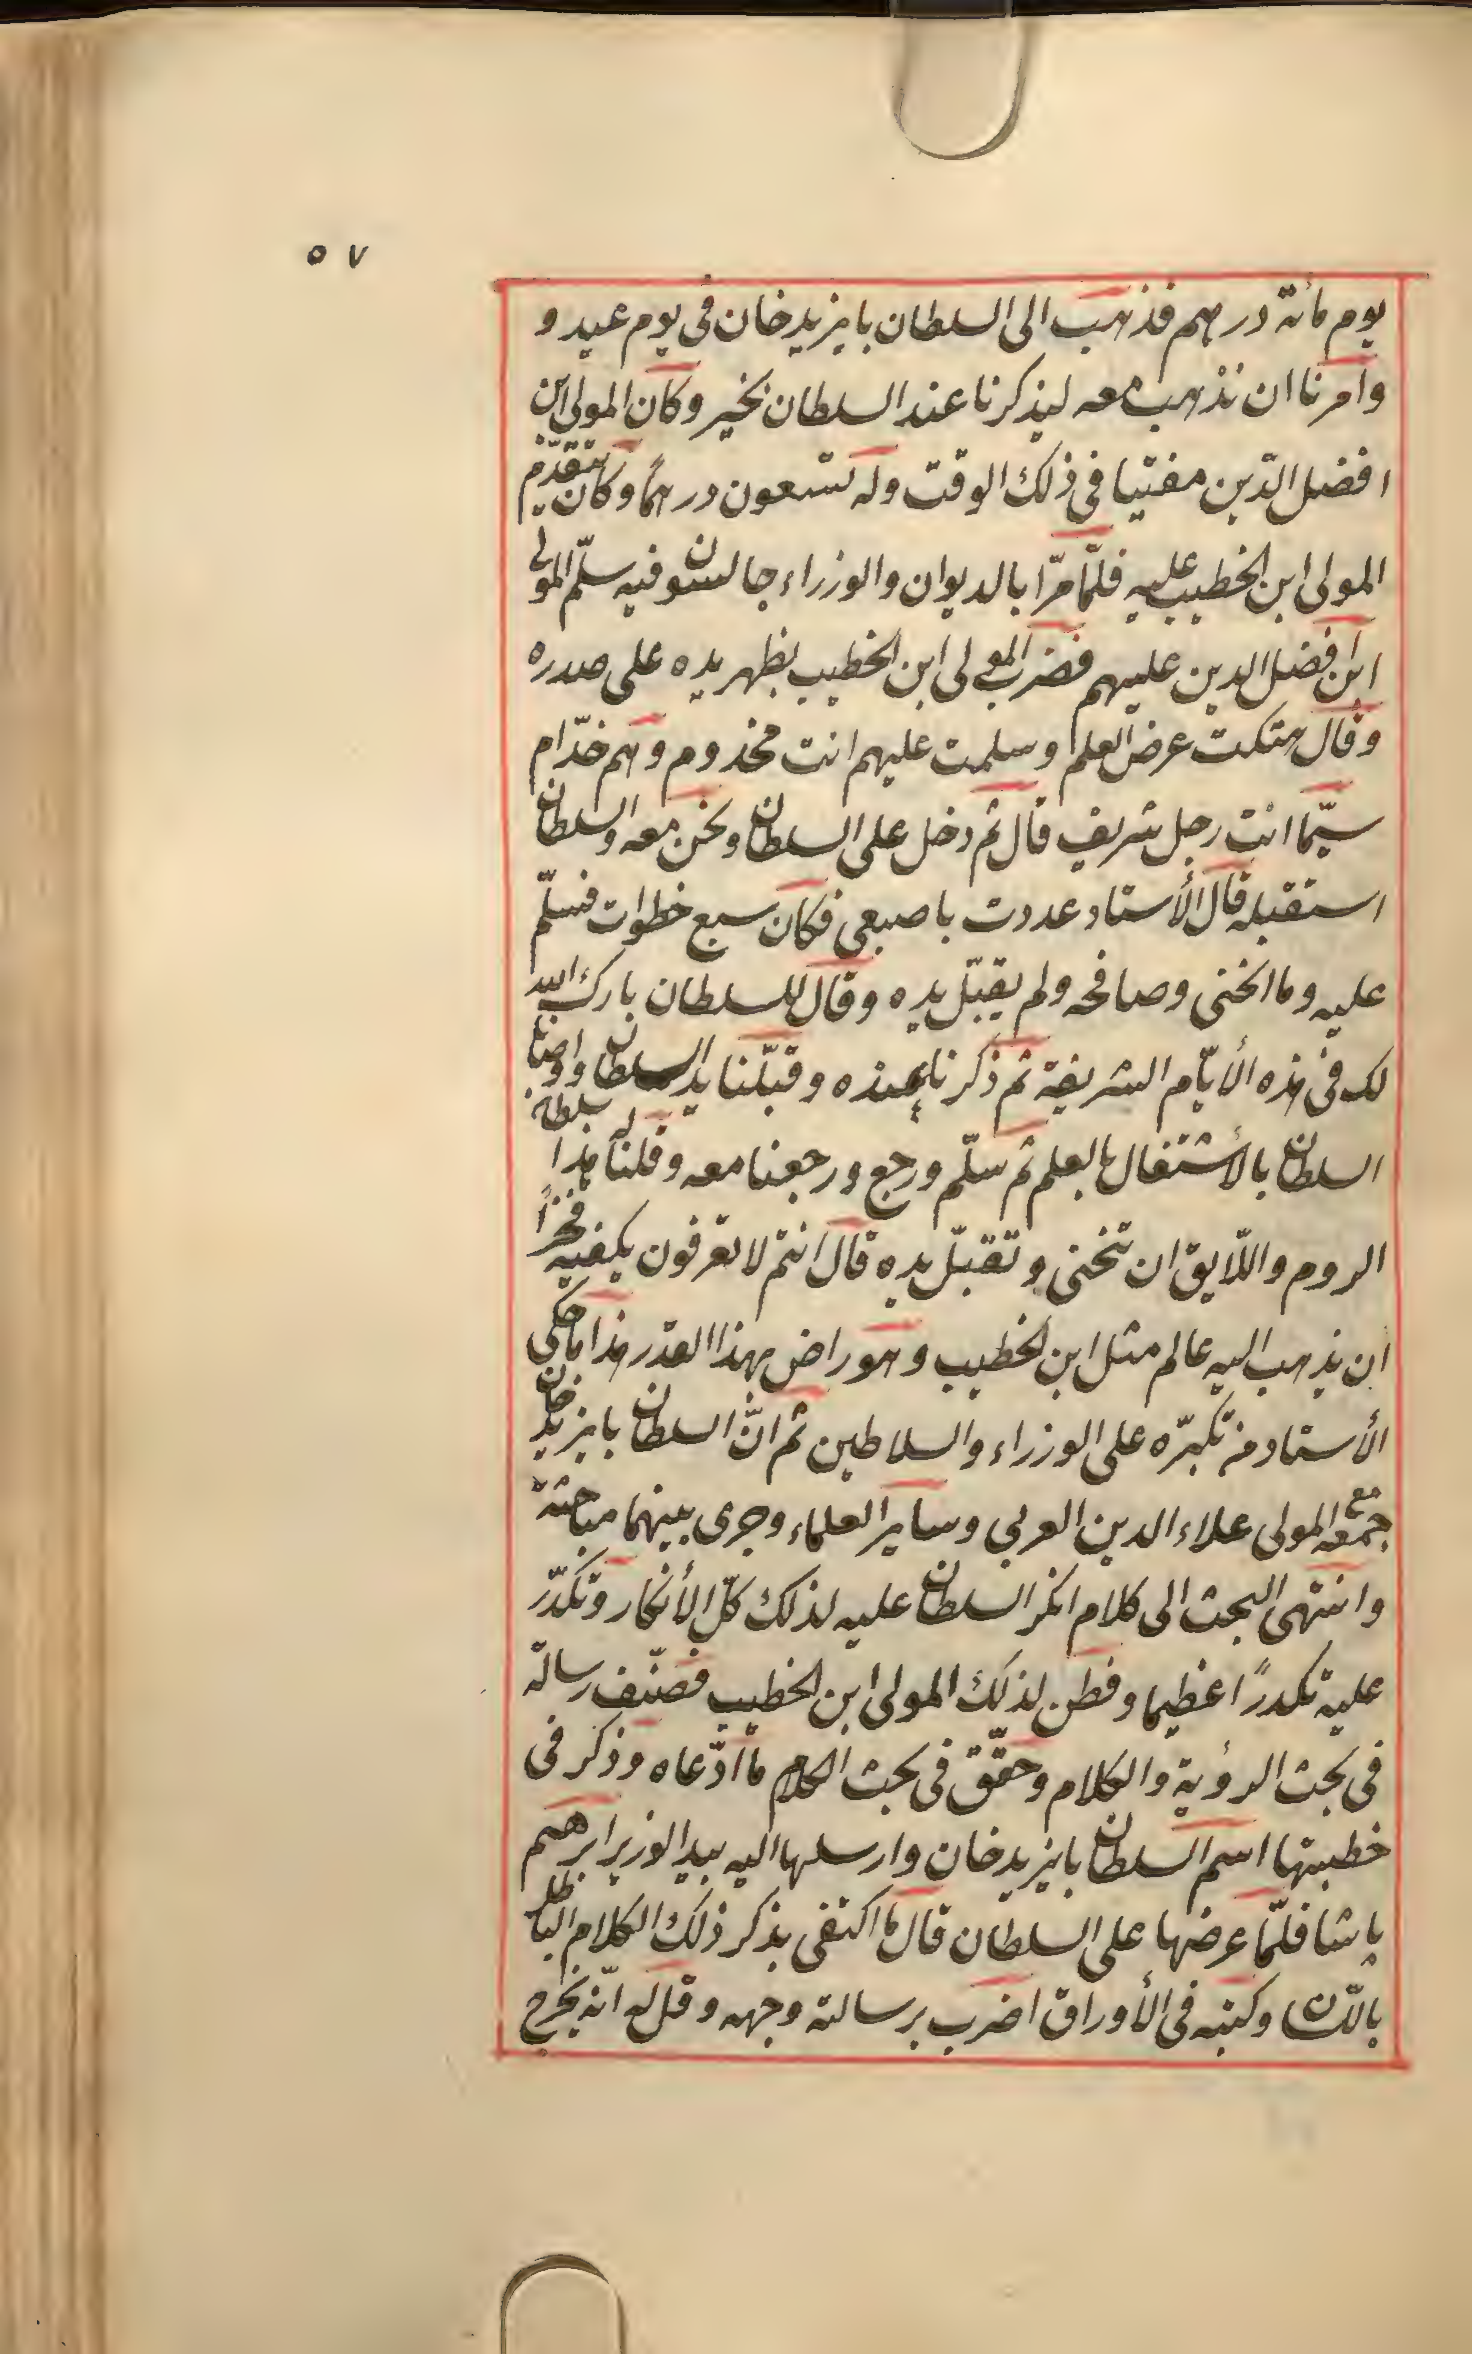 ٥٧
يوم مائة درهم فذهب الى السلطان بايزيد خان فى يوم عيد و
وامرنا ان نذهب معه ليذكرنا عند السلطان بخير وكان المولى ابن
افضل الدّين مفتيا فى ذلك الوقت وله تسعون درهمًا وكان يتقدّم
المولى ابن الخطيب عليه فلمّا مرّا بالديوان والوزراء جالسون فيه سلّم المولى
ابن افضل الدين عليهم فضرب المولى ابن الخطيب بظهر يده على صدره
وقال هتكت عرض العلم وسلمت عليهم انت مخدوم وهم خدّام
سيّما انت رجل شريف قال ثم دخل على السلطان ونحن معه والسلطان
استقبله قال الأستاد عددت باصبعى فكان سبع خطوات فسلّم
عليه وما انحنى وصافحه ولم يقبّل يده وقال للسلطان بارك الله
لك فى هذه الأيّام الشريفة ثم ذكرنا عنده وقبّلنا يد السلطان واوصانا
السلطان بالأشتغال بالعلم ثم سلّم ورجع ورجعنا معه وقلنا له هذا سلطان
الروم واللّايق ان تنحنى وتقبّل يده قال انتم لا تعرفون يكفيه فخرًا
ان يذهب اليه عالم مثل ابن الخطيب وهو راض بهذا القدر هذا ما حكى
الأستاد من تكبّره على الوزراء والسلاطين ثم انّ السلطان بايزيد خان
جمعه مع المولى علاء الدين العربى وساير العلماء وجرى بينهما مباحثة
وانتهى البحث الى كلام انكر السلطان عليه لذلك كلّ الأنكار وتكدّر
عليه تكدرًا عظيما وفطن لذلك المولى ابن الخطيب فصنّف رسالة
فى بحث الرؤية والكلام وحقّق فى بحث الكلام ما ادّعاه وذكر فى
خطبتها اسم السلطان بايزيد خان وارسلها اليه بيد الوزير ابرهيم
پاشا فلمّا عرضها على السلطان قال ما اكتفى بذكر ذلك الكلام الباطل
باللسان وكتبه فى الأوراق اضرب برسالته وجهه وقل له انّه يخرج